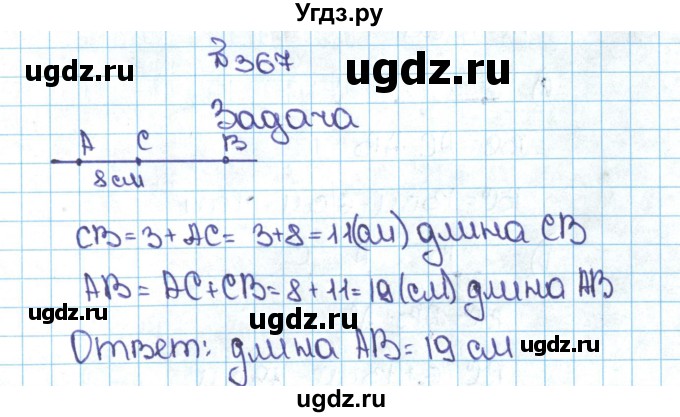 Угдз.ру
№367
ugdz.ru
ugdz.ru
Задача
A C B
8 см
ugdz.ru
CB = 3 + AC = 3 + 8 = 11 (см) длина CB
AB = AC + CB = 8 + 11 = 19 (см) длина AB
ugdz.ru
ugdz.ru
Ответ: длина AB = 19 см
ugdz.ru
ugdz.ru